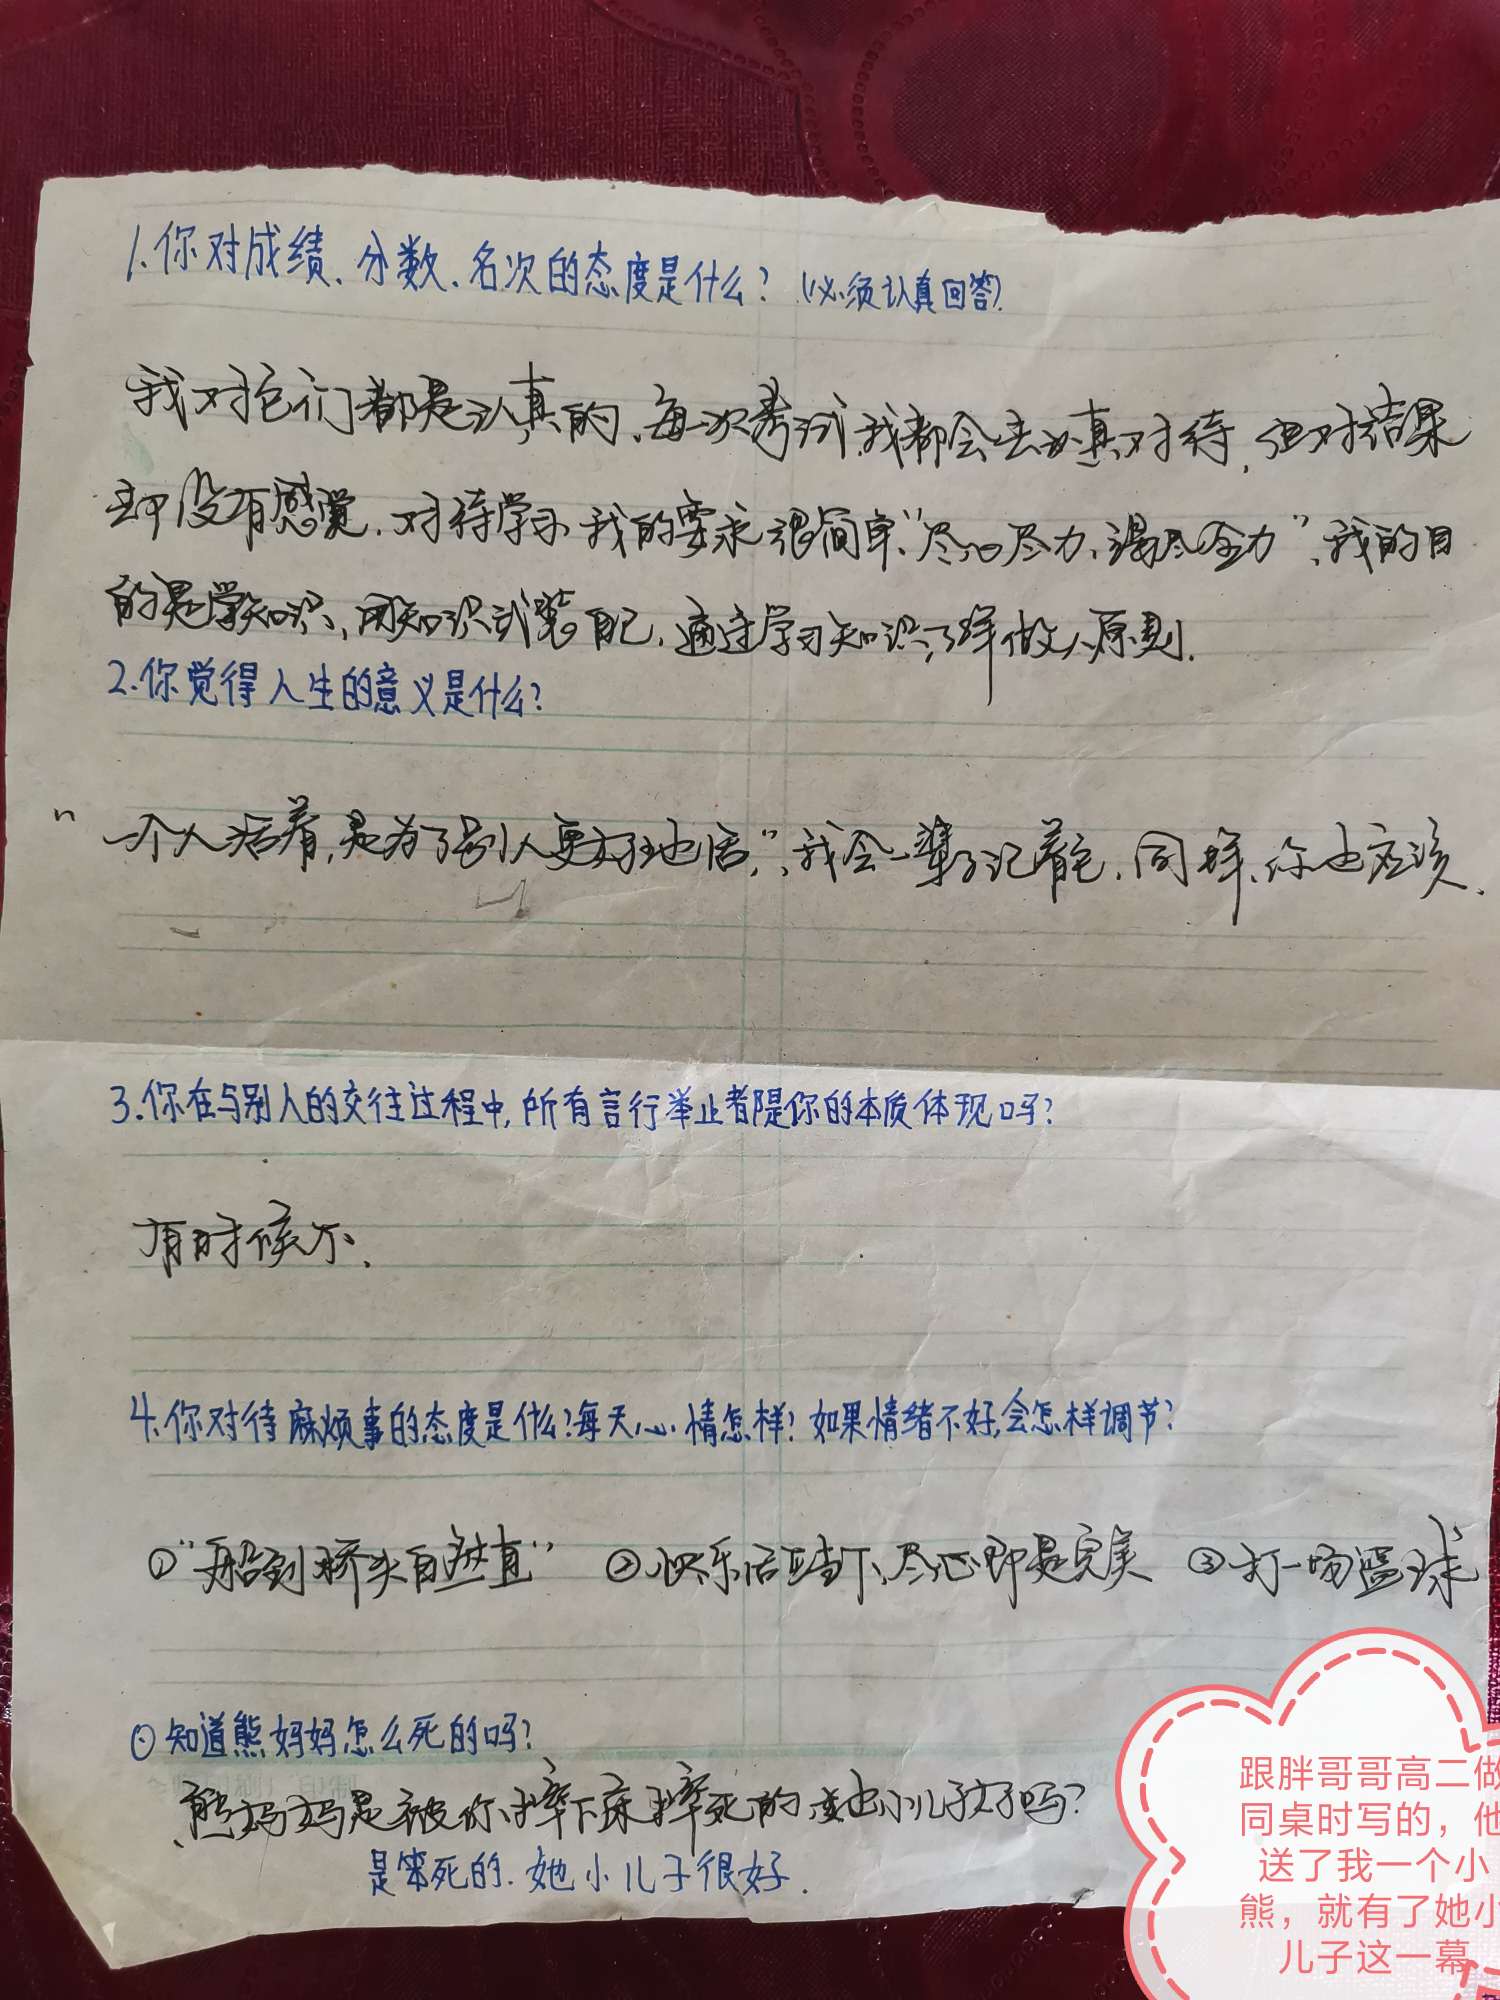 1.你对成绩、分数、名次的态度是什么?(必须认真回答).
我对它们都是认真的、每一次考试、我都会去认真对待,但对结果
却没有感觉.对待学习、我的要求很简单、"尽心尽力、竭尽全力"、我的目
的是学知识、用知识武装自己.通过学习知识、了解做人原则.
2.你觉得人生的意义是什么?
"一个人活着,是为了别人更好地活"、我会一辈子记着它.同样、你也应该.
3.你在与别人的交往过程中,所有言行举止都是你的本质体现吗?
有时候不.
4.你对待麻烦事的态度是什么?每天心情怎样?如果情绪不好,会怎样调节?
①"船到桥头自然直" ②快乐活在当下、尽心即是完美 ③打一场篮球
⊙知道熊妈妈怎么死的吗?
熊妈妈是被你摔下床摔死的 她小儿子好吗?
是笨死的.她小儿子很好.
跟胖哥哥高二做
同桌时写的,他
送了我一个小
熊,就有了她小
儿子这一幕